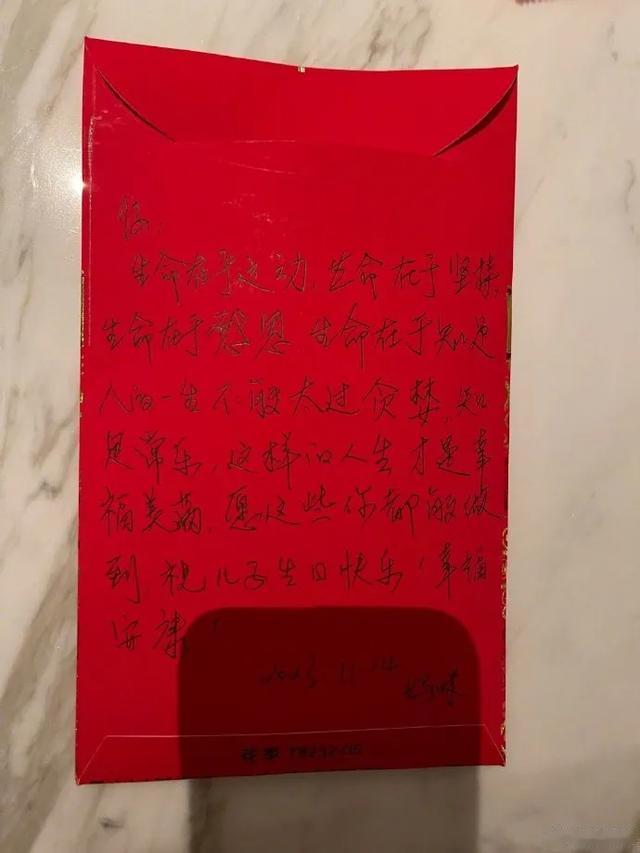 生命在于运动，生命在于坚持，
生命在于感恩 生命在于知足
人的一生不能太过贪婪，知
足常乐，这样的人生才是幸
福美满，愿这些你都能做
到，祝儿子生日快乐！幸福
安康！
2023.11.14